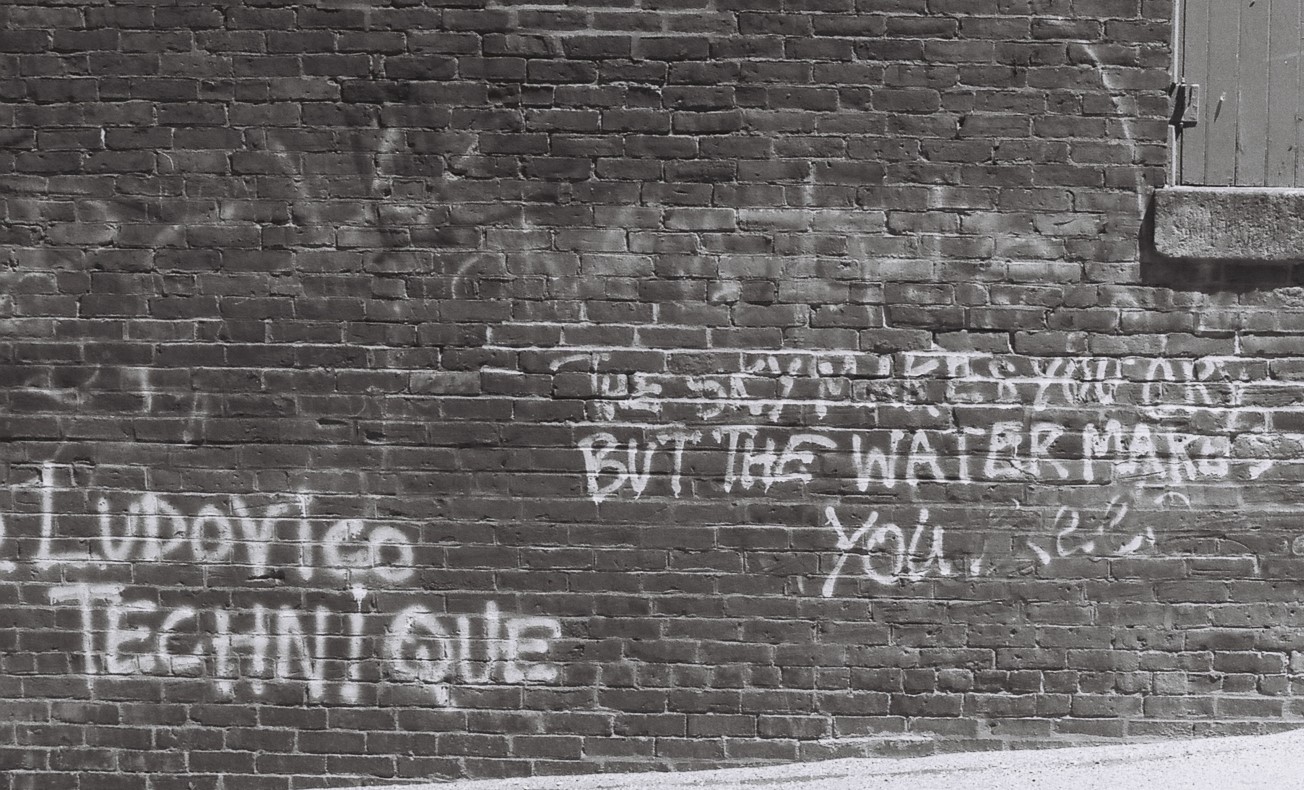 Ludovico
TECHNiQUE
THE SKY MAKES YOU CRY
BUT THE WATER MAKES
YOU